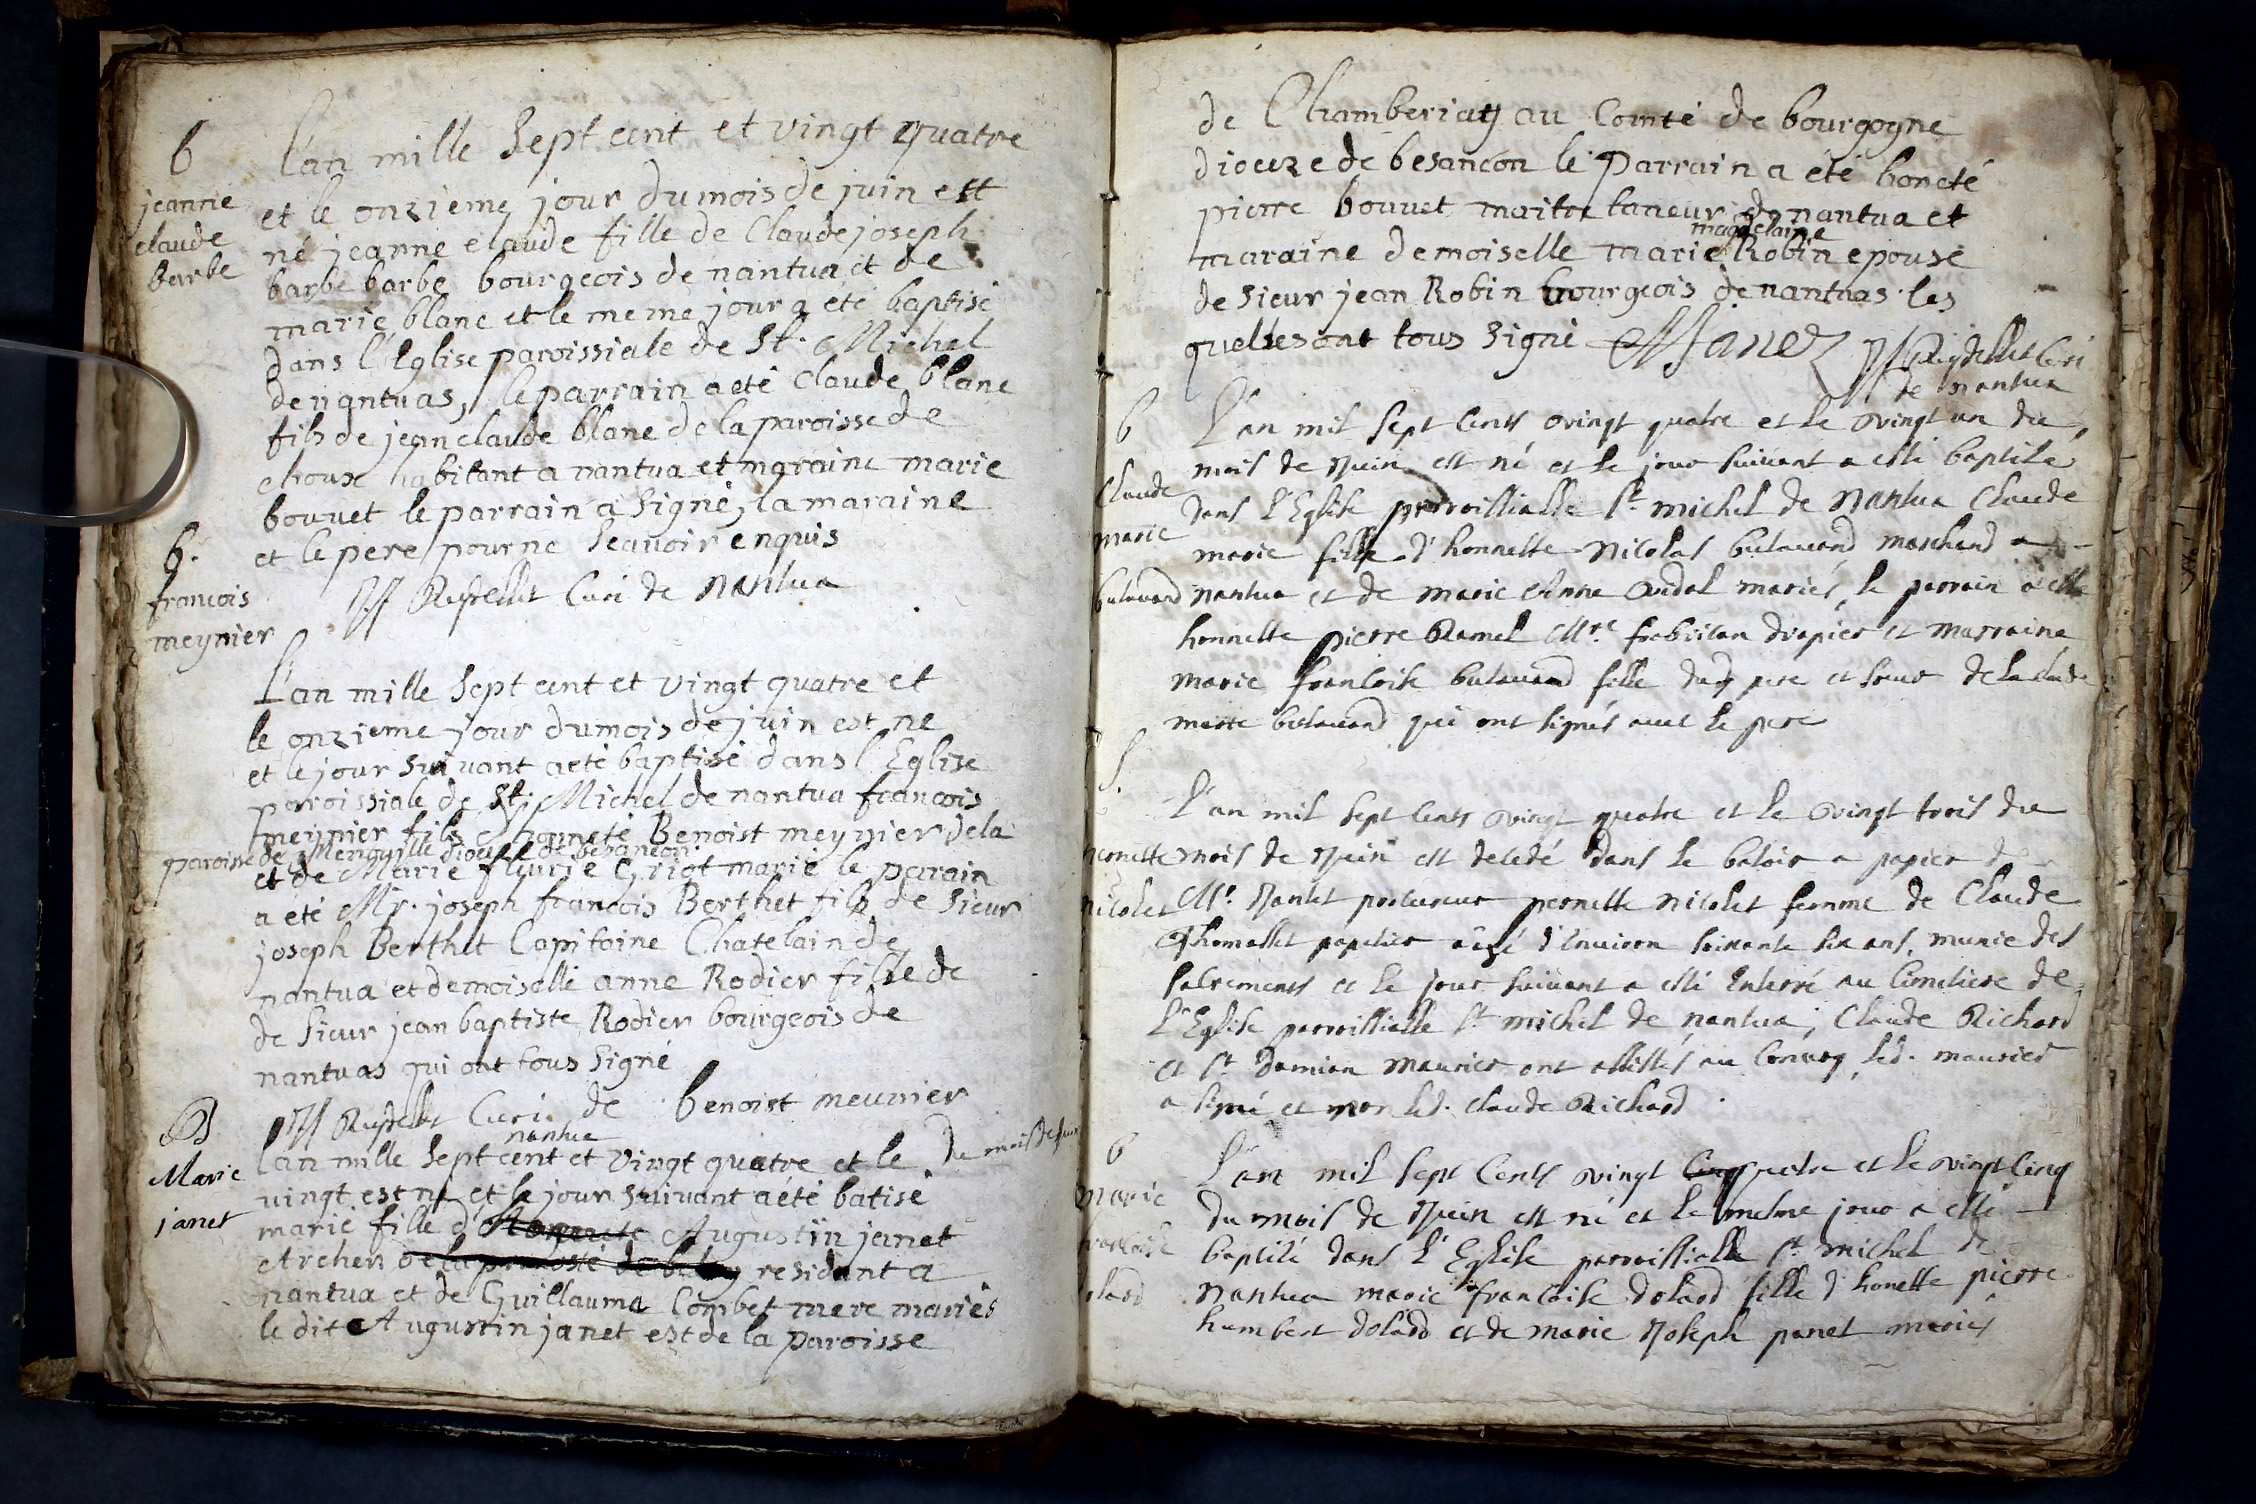 b
jeanne
claude
barbe
L'an mille sept cent et vingt quatre
et le onzieme jour du mois de juin est
né jeanne claude fille de Claude joseph
barbe barbe bourgeois de nantua et de
marie blanc et le meme jour a été baptisé
dans l'Eglise paroissiale de St. Michel
de nantuas, le parrain a eté claude blanc
fils de jean claude blanc de la paroisse de
choux habitant a nantua et maraine marie
bouvet le parrain a signé, la maraine
et le pere pour ne sçavoir enquis
Curé de Nantua
b.
francois
meynier
L'an mille sept cent et vingt quatre et
le onzieme jour du mois de juin est ne
et le jour suivant a eté baptisé dans l'Eglise
paroissiale de St. Michel de nantua francois
meynier fils honneté Benoist meynier de la
paroisse de diocese de besançon
et de Marie fleurie Griot marié le parain
a été Mr. joseph francois Berthet fils de sieur
joseph Berthet Capitaine Chatelain de
nantua et demoiselle anne Rodier fille de
de sieur jean baptiste Rodier bourgeois de
nantuas qui ont tous signé
Curé de benoist meunier
nantua
B
Marie
janet
L'an mille sept cent et vingt quatre et le du mois de juin
vingt est né et le jour suivant a été batisé
marie fille d' Augustin janet
Archer residant a
nantua et de Guillauma Combet mere mariés
le dit Augustin janet est de la paroisse
de Chamberiat au Comté de bourgogne
dioceze de besancon le Parrain a été honeté
pierre bouvet maitre taneur de nantua et
magdelaine
maraine demoiselle marie Robin epouse
de sieur jean Robin bourgeois de nantuas les
quelles ont tous signé Janet Curé
de nantua
b
Claude
marie
bulavand
L'an mil sept cents vingt quatre et le vingt un du
mois de Juin est né et le jour suivant a esté baptisée
dans l'Eglise parroissialle St michel de Nantua Claude
marie fille d'honneste Nicolas bulavand marchand a
nantua et de marie Anne Andol mariés, le parrain a esté
honneste pierre Ramel Mre fabrican drapier et marraine
marie francoise bulavand fille dud pere et soeur de la claude
marie bulavand qui ont signés avec le pere
S.
pernette
nicolet
L'an mil sept cents vingt quatre et le vingt trois du
mois de Juin est decedé dans le batoir a papier de
Mr. Nantet procureur pernette nicolet femme de Claude
Thomasset papetier agé d'environ soixante six ans, munie des
sacrements et le jour suivant a esté enterré au cimetiere de
l'Eglise parroissialle St michel de nantua; Claude Richard
et Sr damien maurier ont assistés au convoy, led. maurier
a signé et non led. claude Richard
b
marie
francoise
dolard
L'an mil sept cents vingt quatre et le vingt cinq
du mois de Juin est né et le mesme jour a esté
baptisé dans l'Eglise parroissialle St michel de
Nantua marie francoise dolard fille d'honeste pierre
humbert dolard et de marie Joseph panet mariés